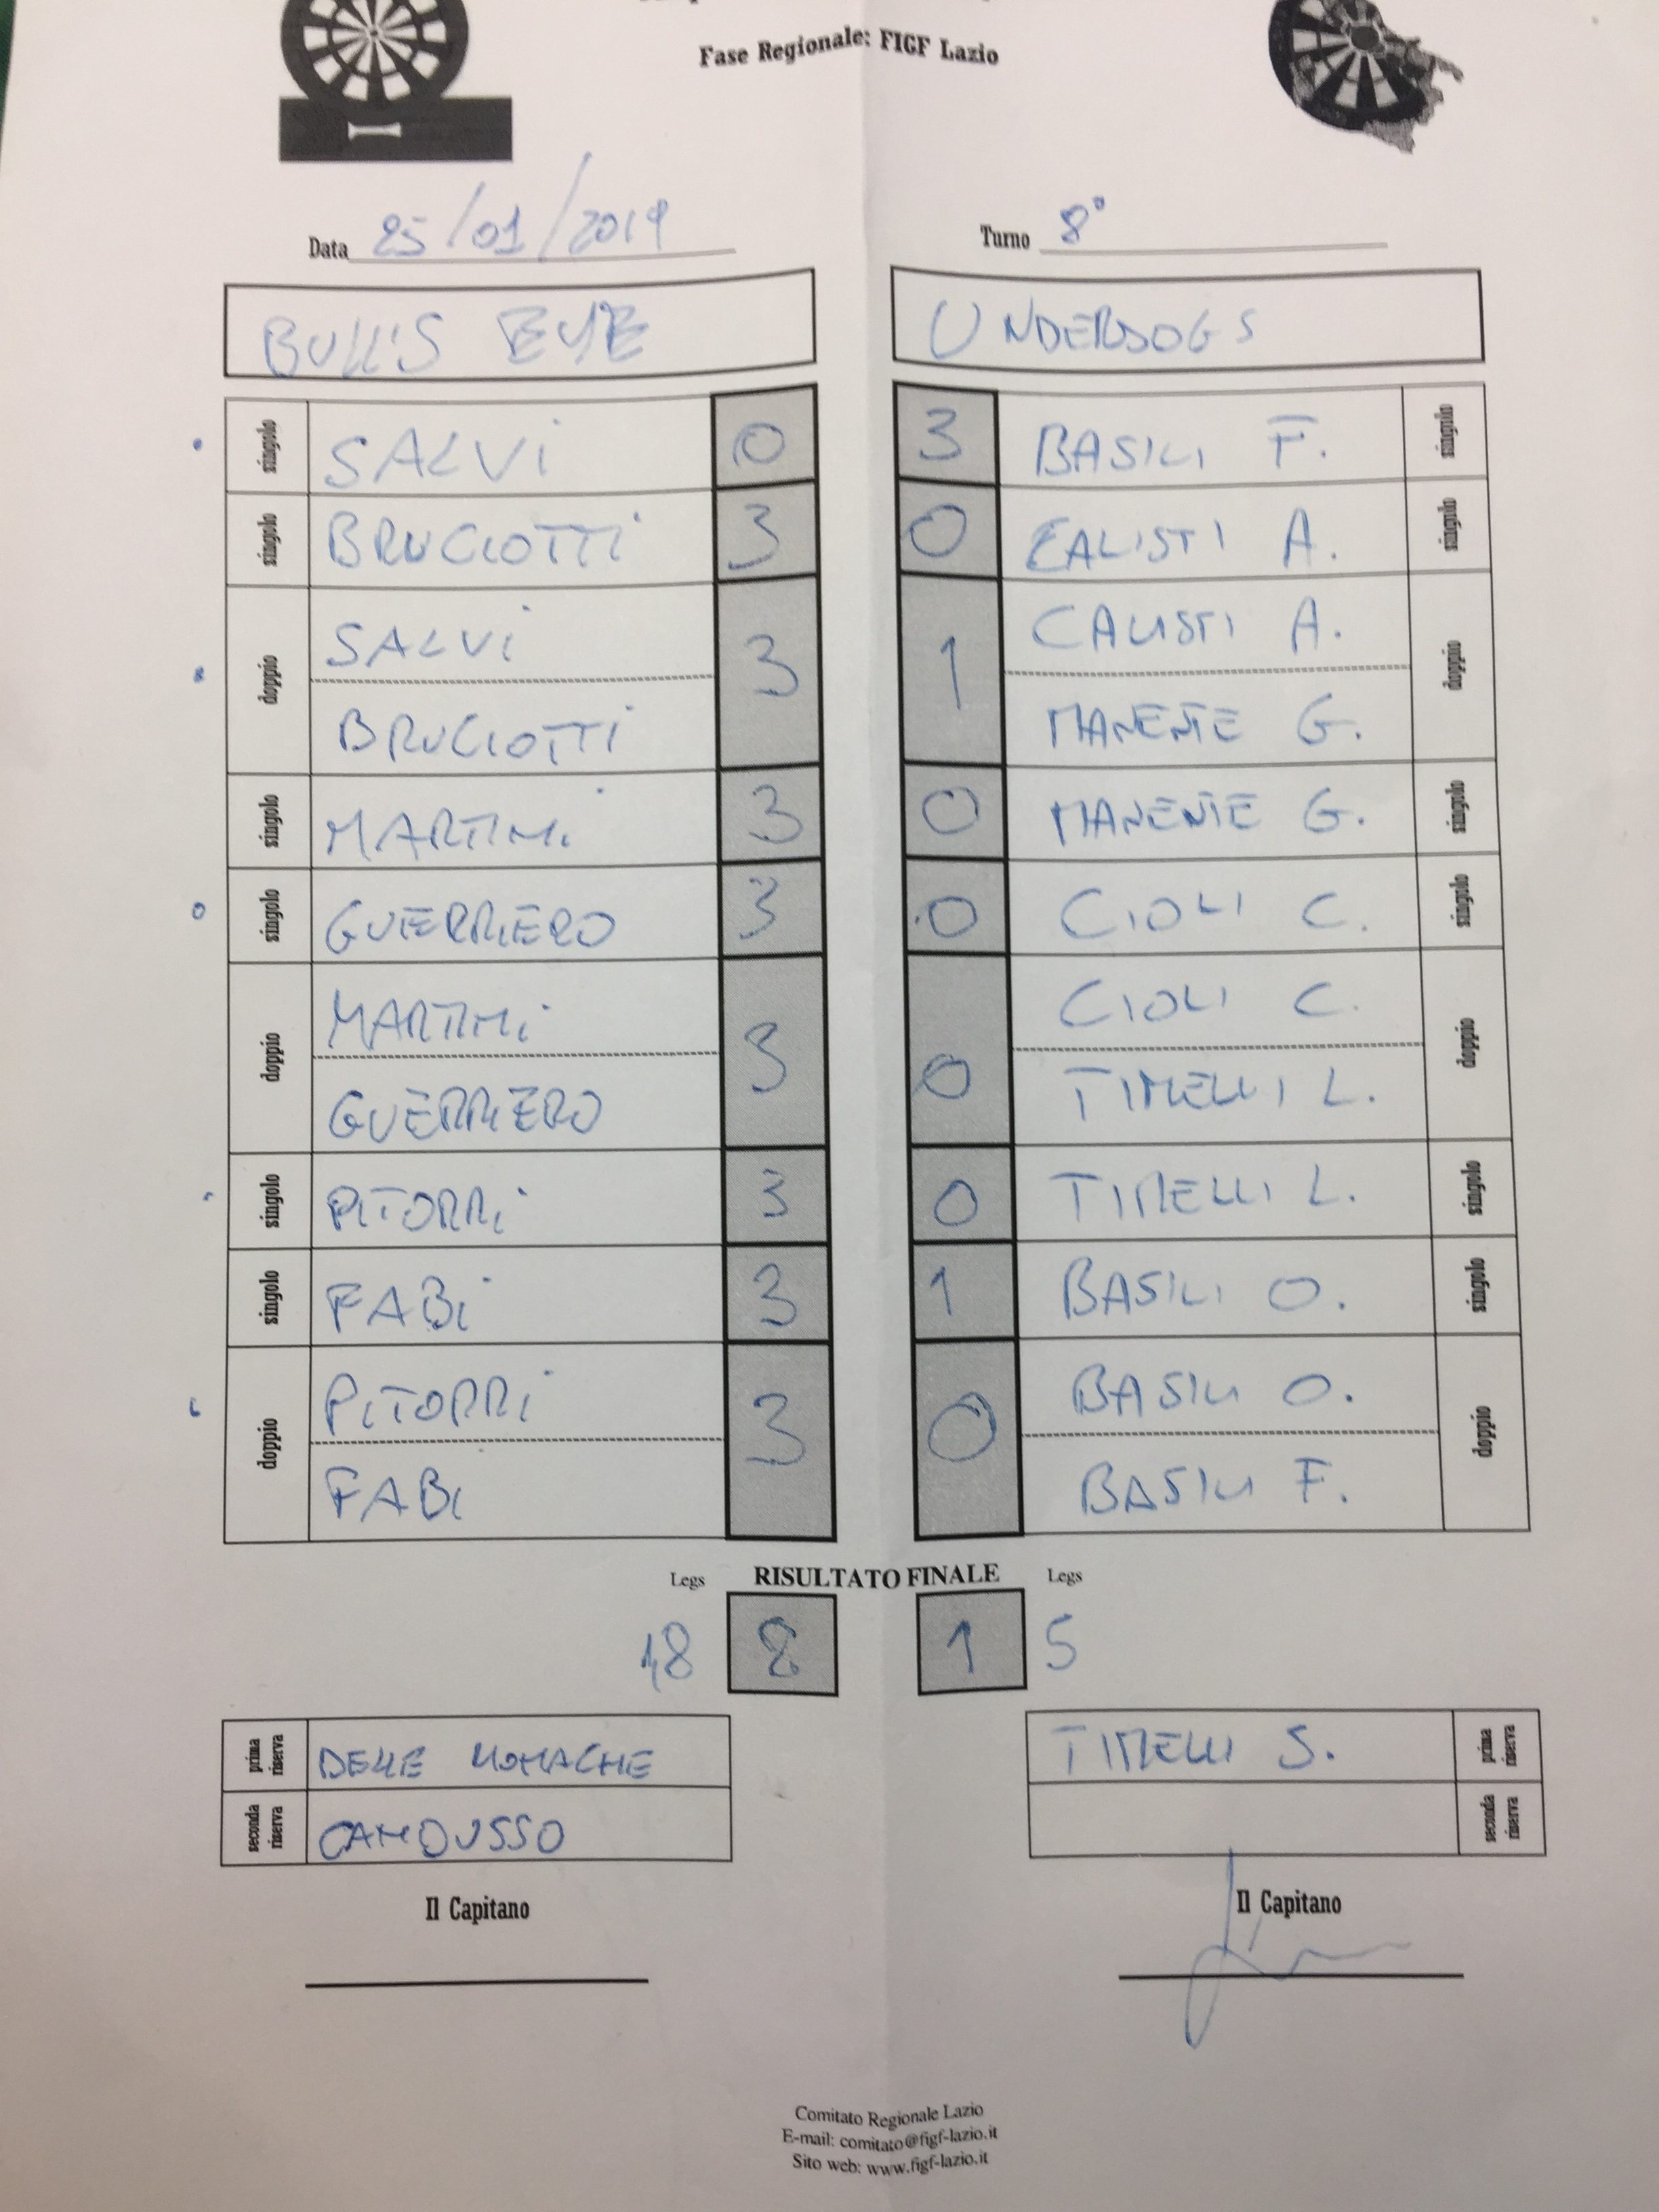 Fase Regionale: FIGF Lazio
Data 25/01/2019 Turno 8°
BULL'S EYE UNDERDOGS
singolo SALVI 0 3 BASILI F. singolo
singolo BRUCIOTTI 3 0 CALISTI A. singolo
doppio SALVI 3 1 CALISTI A. doppio
BRUCIOTTI MANENTE G.
singolo MARTINI 3 0 MANENTE G. singolo
singolo GUERRIERO 3 0 CIOLI C. singolo
doppio MARTINI 3 0 CIOLI C. doppio
GUERRIERO TIMELLI L.
singolo PITORRI 3 0 TIMELLI L. singolo
singolo FABI 3 1 BASILI O. singolo
doppio PITORRI 3 0 BASILI O. doppio
FABI BASILI F.
Legs RISULTATO FINALE Legs
8 1 5
prima riserva DELLE MONACHE TIMELLI S. prima riserva
seconda riserva CANOUSSO seconda riserva
Il Capitano Il Capitano
Comitato Regionale Lazio
E-mail: comitato@figf-lazio.it
Sito web: www.figf-lazio.it